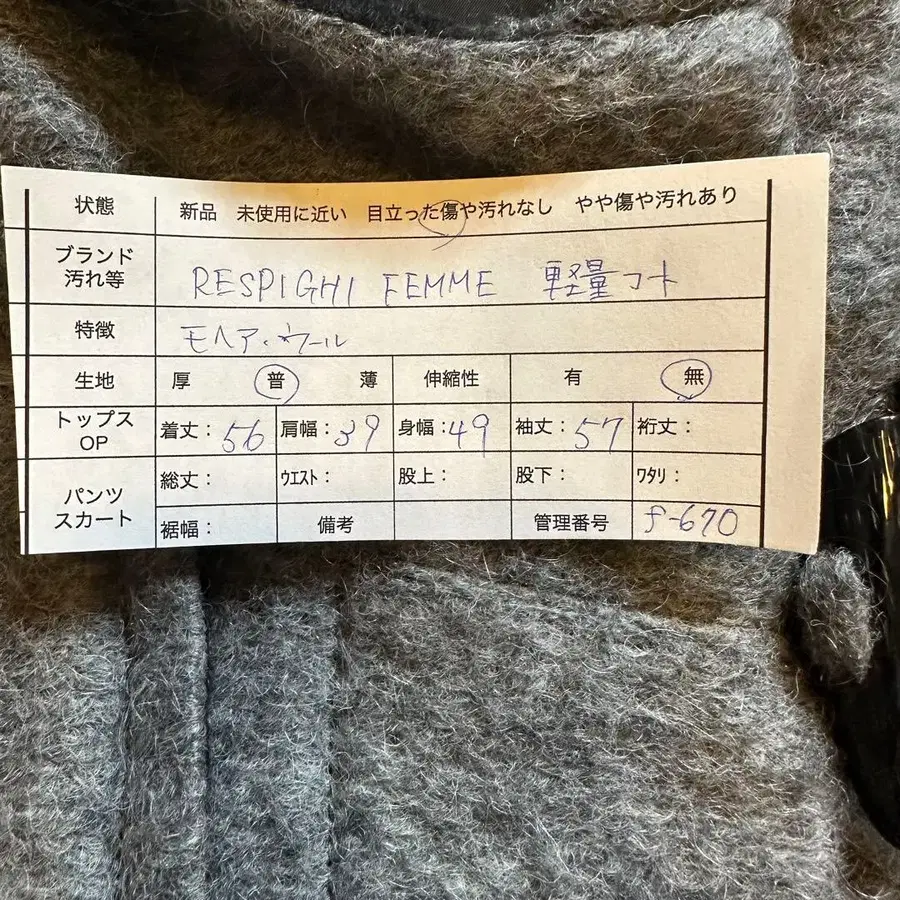 状態 新品 未使用に近い 目立った傷や汚れなし やや傷や汚れあり
ブランド
汚れ等
RESPIGHI FEMME 軽量コート
特徴 モヘア・ウール
生地 厚 普 薄 伸縮性 有 無
トップス
OP
着丈: 56 肩幅: 39 身幅: 49 袖丈: 57 裄丈:
パンツ
スカート
総丈: ウエスト: 股上: 股下: ワタリ:
裾幅: 備考 管理番号 f-670